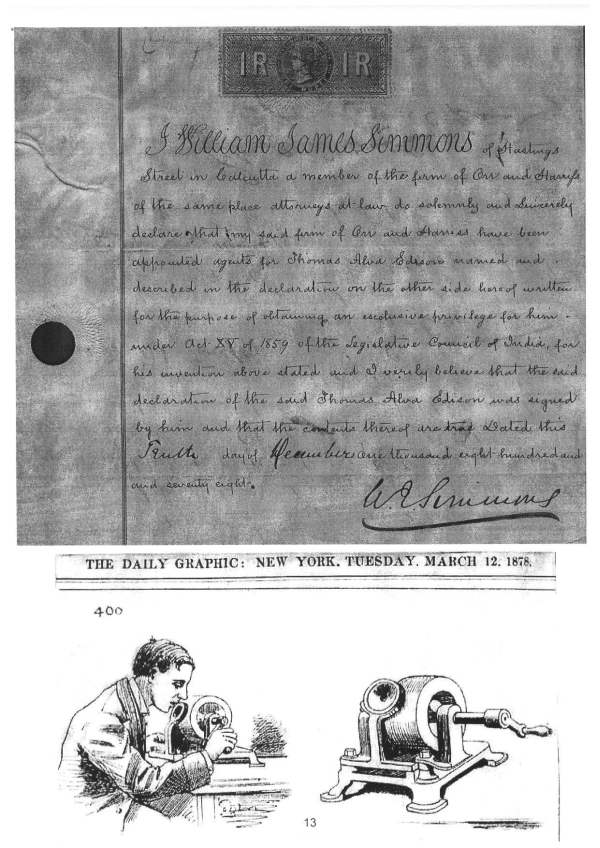 1R 1R
I William James Simmons of Hastings
Street in Calcutta a member of the firm of Orr and Harriss
of the same place attorneys at law do solemnly and Sincerely
declare that my said firm of Orr and Harriss have been
appointed agents for Thomas Alva Edison named and
described in the declaration on the other side hereof written
for the purpose of obtaining an exclusive privilege for him
under Act XV of 1859 of the Legislative Council of India, for
his invention above stated and I verily believe that the said
declaration of the said Thomas Alva Edison was signed
by him and that the contents thereof are true Dated this
Tenth day of December One thousand eight hundred and
and seventy eight.
W J Simmons
THE DAILY GRAPHIC: NEW YORK. TUESDAY. MARCH 12. 1878.
400
13